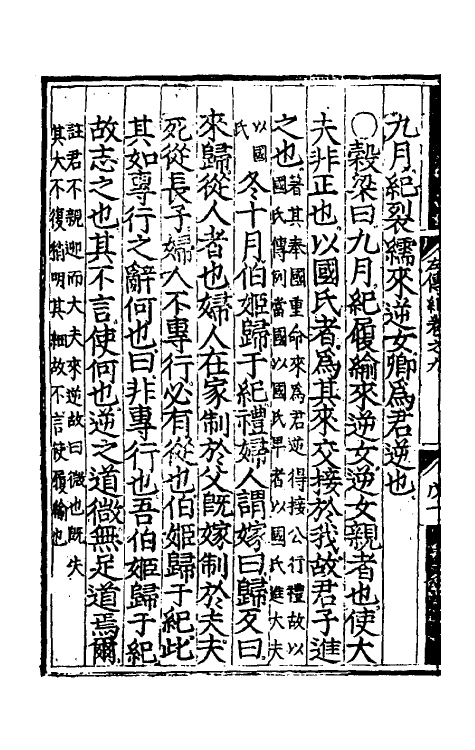 九月紀裂繻來逆女卿為君逆也
〇穀梁曰九月紀履緰來逆女逆女親者也使大
夫非正也以國氏者為其來交接於我故君子進
之也著其奉國重命來為君逆得接公行禮故以
國氏傳例當國以國氏卑者以國氏進大夫
以國
氏冬十月伯姬歸于紀禮婦人謂嫁曰歸反曰
來歸從人者也婦人在家制於父既嫁制於夫夫
死從長子婦人不專行必有從也伯姬歸于紀此
其如專行之辭何也曰非專行也吾伯姬歸于紀
故志之也其不言使何也逆之道微無足道焉爾
註君不親迎而大夫來逆故曰微也既失
其大不復稍明其細故不言使履緰也